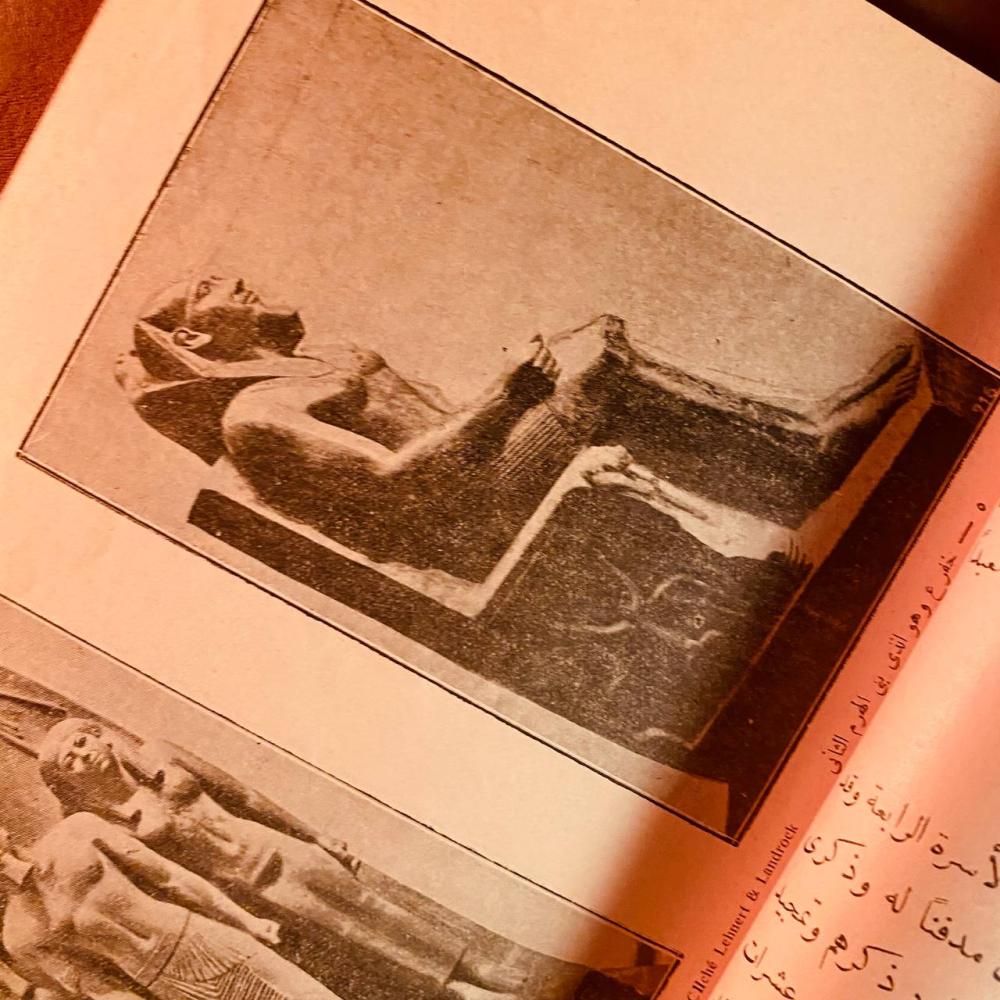 ٥ — خفرع وهو الذى بنى الهرم الثانى
Cliché Lehnert & Landrock
الأسرة الرابعة وقد
مدفناً له وذكرى
ذكرهم وتمجيد
عشران